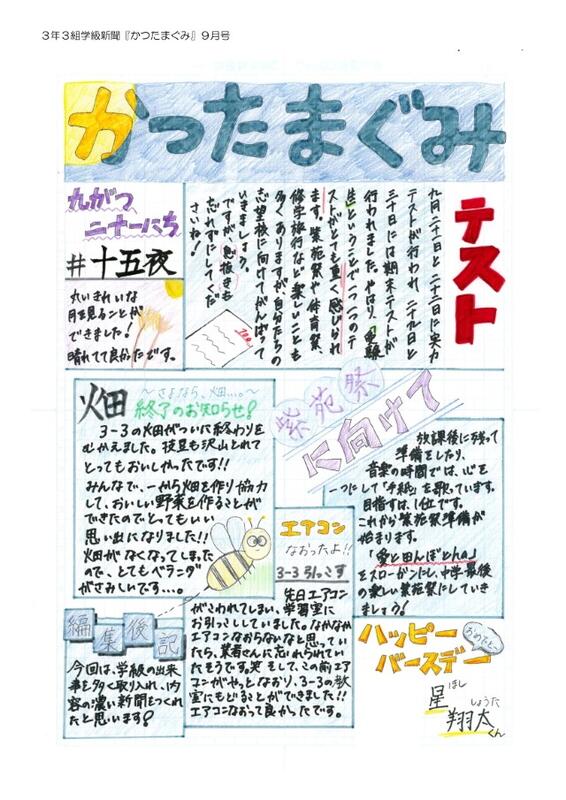 3年3組学級新聞『かつたまぐみ』9月号
かったまぐみ
テスト
九月二十日と二十三日に実力
テストが行われ、二十九日と
三十日には期末テストが
行われました。やはり、「受験
生」ということで一つ一つのテ
ストがとても重く感じられ
ます。紫苑祭や体育祭、
修学旅行など楽しいことも
多くありますが、自分たちの
志望校に向けてがんばって
いきましょう。
ですが、息抜きも
忘れずにしてくだ
さいね!
100
九がつ
二十一にち
#十五夜
丸いきれいな
月を見ることが
できました!
晴れてて良かったです。
畑
〜さよなら、畑…。〜
終了のお知らせ!
3-3の畑がついに終わりを
むかえました。枝豆も沢山とれて
とってもおいしかったです!!
みんなで、一から畑を作り協力
して、おいしい野菜を作ることが
できたのでとってもいい
思い出になりました!!
畑がなくなってしまった
ので、とてもベランダ
がさみしいです…。
紫苑祭
に向けて
放課後に残って
準備をしたり、
音楽の時間では、心を
一つにして「手紙」を歌っています。
目指すは、1位です。
これから紫苑祭準備が
始まります。
「愛と田んぼとんの」
をスローガンにし、中学最後
の楽しい紫苑祭にしていき
ましょう!
エアコン
なおったよ!!
3-3引っこす
先日エアコン
がこわれてしまい、学習室に
お引っこししていました。なかなか
エアコンなおらないなと思ってい
たら、業者さんに忘れられてい
たそうです。笑 そして、この前エア
コンがやっとなおり、3-3の教
室にもどることができました!!
エアコンなおって良かったです。
編集後記
今回は、学級の出来
事を多く取り入れ、内
容の濃い新聞をつくれ
たと思います!
ハッピー
バースデー
おめでと〜
星 ほし
翔太 しょうた
くん